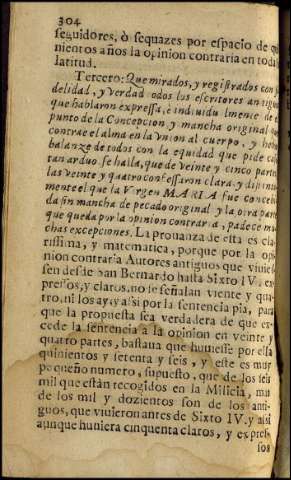 304
seguidores, ò sequazes por espacio de qui
nientos años la opinion contraria en toda
latitud.
Tercero: Que mirados, y registrados con
delidad, y verdad odos los escritores antiguo
que hablaron expressa, è indiuidu lmente de
punto de la Concepcion y mancha original que
contrae el alma en la vnion al cuerpo, y hecho
balanze de todos con la equidad que pide
tan arduo se halla, que de veinte y cinco partes
las veinte y quatro confessaron clara, y distinta
mente el que la Virgen MARIA fue concebi
da sin mancha de pecado original y la otra parte
que queda por la opinion contraria, padece mu
chas excepciones. La prouanza de esta es cla
rissima, y matematica, porque por la opi
nion contraria Autores antiguos que viuies
sen desde San Bernardo hasta Sixto IV. ex
pressos, y claros, no se señalan viente y qua
tro, ni los ay; y assi por la sentencia pia, para
que la propuesta sea verdadera de que ex
cede la sentencia a la opinion en veinte y
quatro partes, bastaua que huuiesse por essa
quinientos y setenta y seis, y este es muy
pequeño numero, supuesto, que de los seis
mil que estàn recogidos en la Milicia, mas
de los mil y dozientos son de los anti-
guos, que viuieron antes de Sixto IV. y assi
aunque huuiera cinquenta claros, y expres-
sos